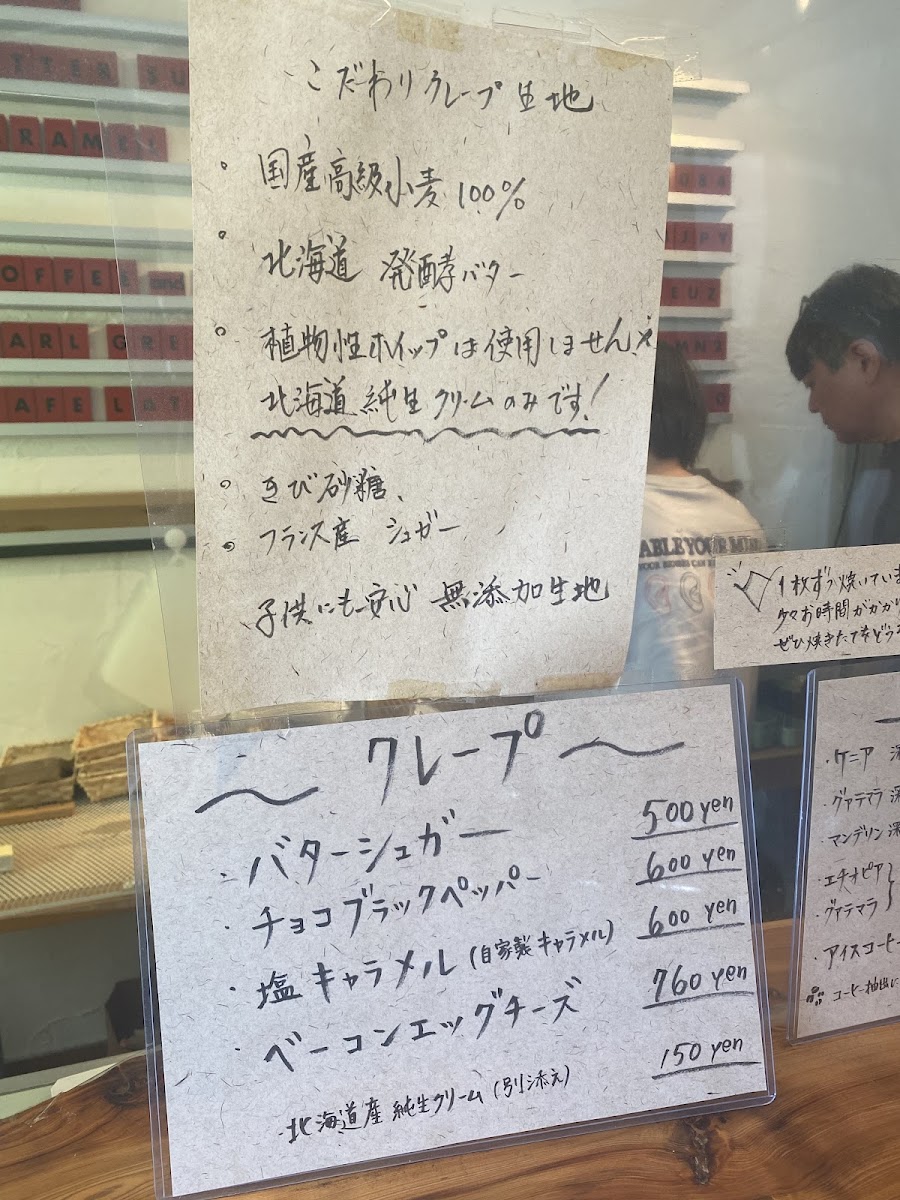 こだわりクレープ生地
国産高級小麦100%
北海道 発酵バター
植物性ホイップは使用しません※
北海道純生クリームのみです!
きび砂糖、
フランス産 シュガー
子供にも安心 無添加生地
〜クレープ〜
・バターシュガー 500yen
・チョコブラックペッパー 600yen
・塩キャラメル(自家製キャラメル) 600yen
・ベーコンエッグチーズ 760yen
・北海道産純生クリーム(別添え) 150yen
1枚ずつ焼いていま
多々お時間がかかり
ぜひ焼きたてをどうぞ
・ケニア 深
・グァテマラ 深
・マンデリン深
・エチオピア
・グァテマラ
・アイスコーヒー
コーヒー抽出に
TTER SU
RAMEL
OFFEE and
ARL GRE
AFE LAT
JPY
EUZ
MN2
ABLE YOUR MI